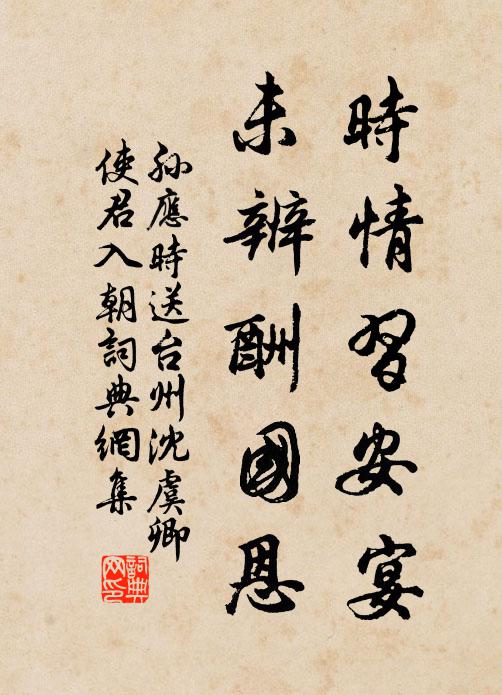 時情習安宴
未辨酬國恩
孙應時送台州沈虞卿
使君入朝詞典網集
詞典
网印